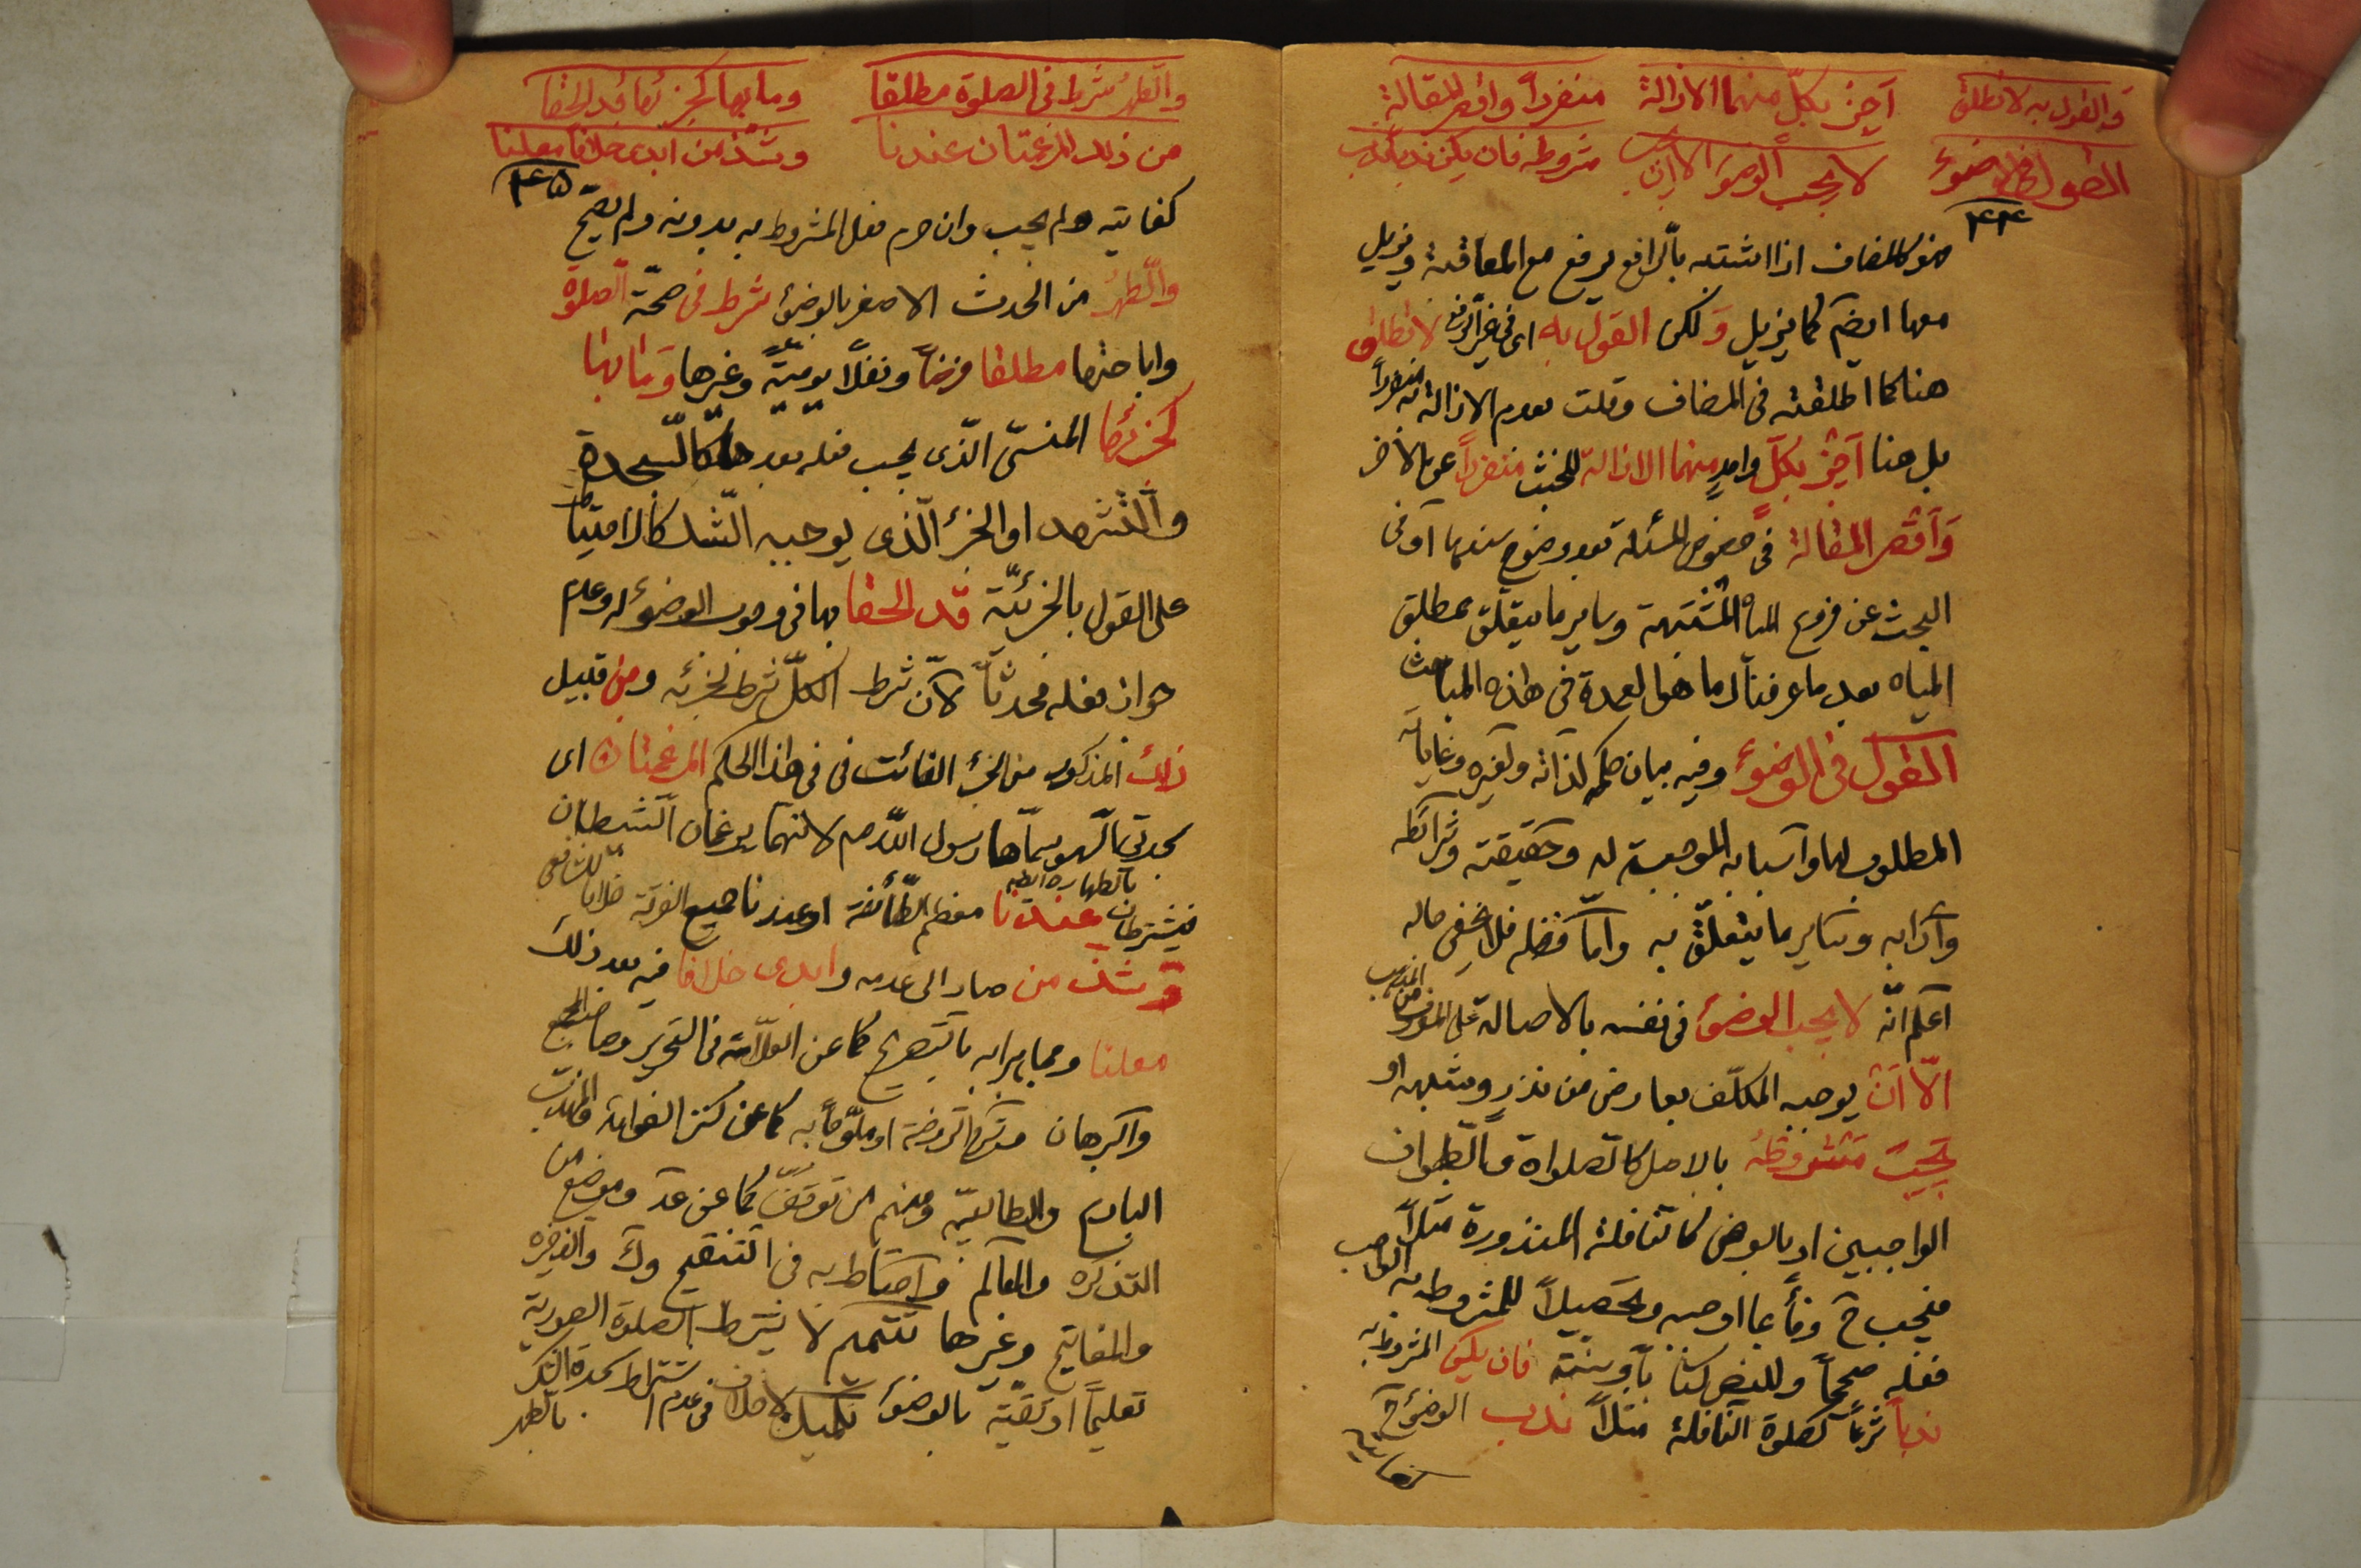 والقول به لا نطلق اجز بكلّ منهما الازالة منفرداً واقصر المقالة
القول في الوضوء لا يجب الوضوء الا ان مشروطه فان يكن ندباً ندب
۴۴
فهو كالمضاف اذا اشتبه بالرافع يرفع مع المعاقبة ويزيل
معها ايضم كما يزيل وَلكن القول به اى في غير الرفع لا نطلق
هنا كما اطلقته في المضاف وقلت بعدم الازالة به منفرداً
بل هنا اَجز بكلّ واحدٍ منهما الازالة للخبث منفرداً عن الاخر
وَاقصر المقالة في خصوص المسئلة بعد وضوح سندها او في
البحث عن فروع الماء المشتبهة وساير ما يتعلّق بمطلق
المياه بعد ما عرفناك ما هو العمدة في هذه المباحث
القول في الوضوء وفيه بيان حكمه لذاته ولغيره وغاياته
المطلوب لها واسبابه الموجبة له وحقيقته وشرائطه
وآدابه وساير ما يتعلّق به وامّا فضله فلا يخفى حاله
اعلم انّه لا يجب الوضوء في نفسه بالاصالة على المعروف من المذهب
الّا اَن يوجبه المكلّف بعارض من نذرٍ وشبهه او
يجب مشروطه بالاصل كالصلوة والطواف
الواجبين او بالعرض كالنافلة المنذورة مثلاً
فيجب ح وفاءً بما اوجبه وتحصيلاً للمشروط به الواجب
فعله صحيحاً وللنص كتاباً وسنّة فان يكن المشروط به
ندباً شرعاً كصلوة النافلة مثلاً ندب الوضوء ح
كفايته
والطهر شرط في الصلوة مطلقا وما بها كجزئها قد الحقا
من ذلك المرغمتان عندنا وشذّ من ابدى خلافاً معلنا
۴۵
كفايته ولم يجب وان حرم فعل المشروط به بدونه ولم يصحّ
والطّهرُ من الحدث الاصغر بالوضوء شرط في صحّة الصلوة
واباحتها مطلقا فرضاً ونفلاً يوميّةً وغيرها وَما بها
كجزئها المنسىّ الّذى يجب فعله بعدها كالسجدة
والتشهد او الجزء الّذى يوجبه الشك كالاحتياط
على القول بالجزئيّة قد الحقا بها في وجوب الوضوء له وعدم
جواز فعله محدثاً لانّ شرط الكلّ شرط لجزئه ومن قبيل
ذلك المذكور من الجزء الفائت في في هذا الحكم المرغمتان اى
سجدتى السّهو سمّاها رسول اللّه ص لانهما يرغمان الشيطان
فيشترطان بالطهارة ايضم عندنا معظم الطّائفة او عندنا جميع الفرقة خلافا للشافعى
وَشذّ من صار الى عدمه وابدى خلافا فيه بعد ذلك
معلنا ومجاهرا به بالتصريح كما عن العلّامة في التحرير وصاحب المجمع
والبرهان
التذكره والمعالم واحتاط به في التنقيح وك والذخيره
والمفاتيح وغيرها تتميم لا يشترط الصلوة الصورية
تعليماً او تقيّة بالوضوء تكميل لا خلاف في عدم اشتراط سجدة الشكر بالطهر